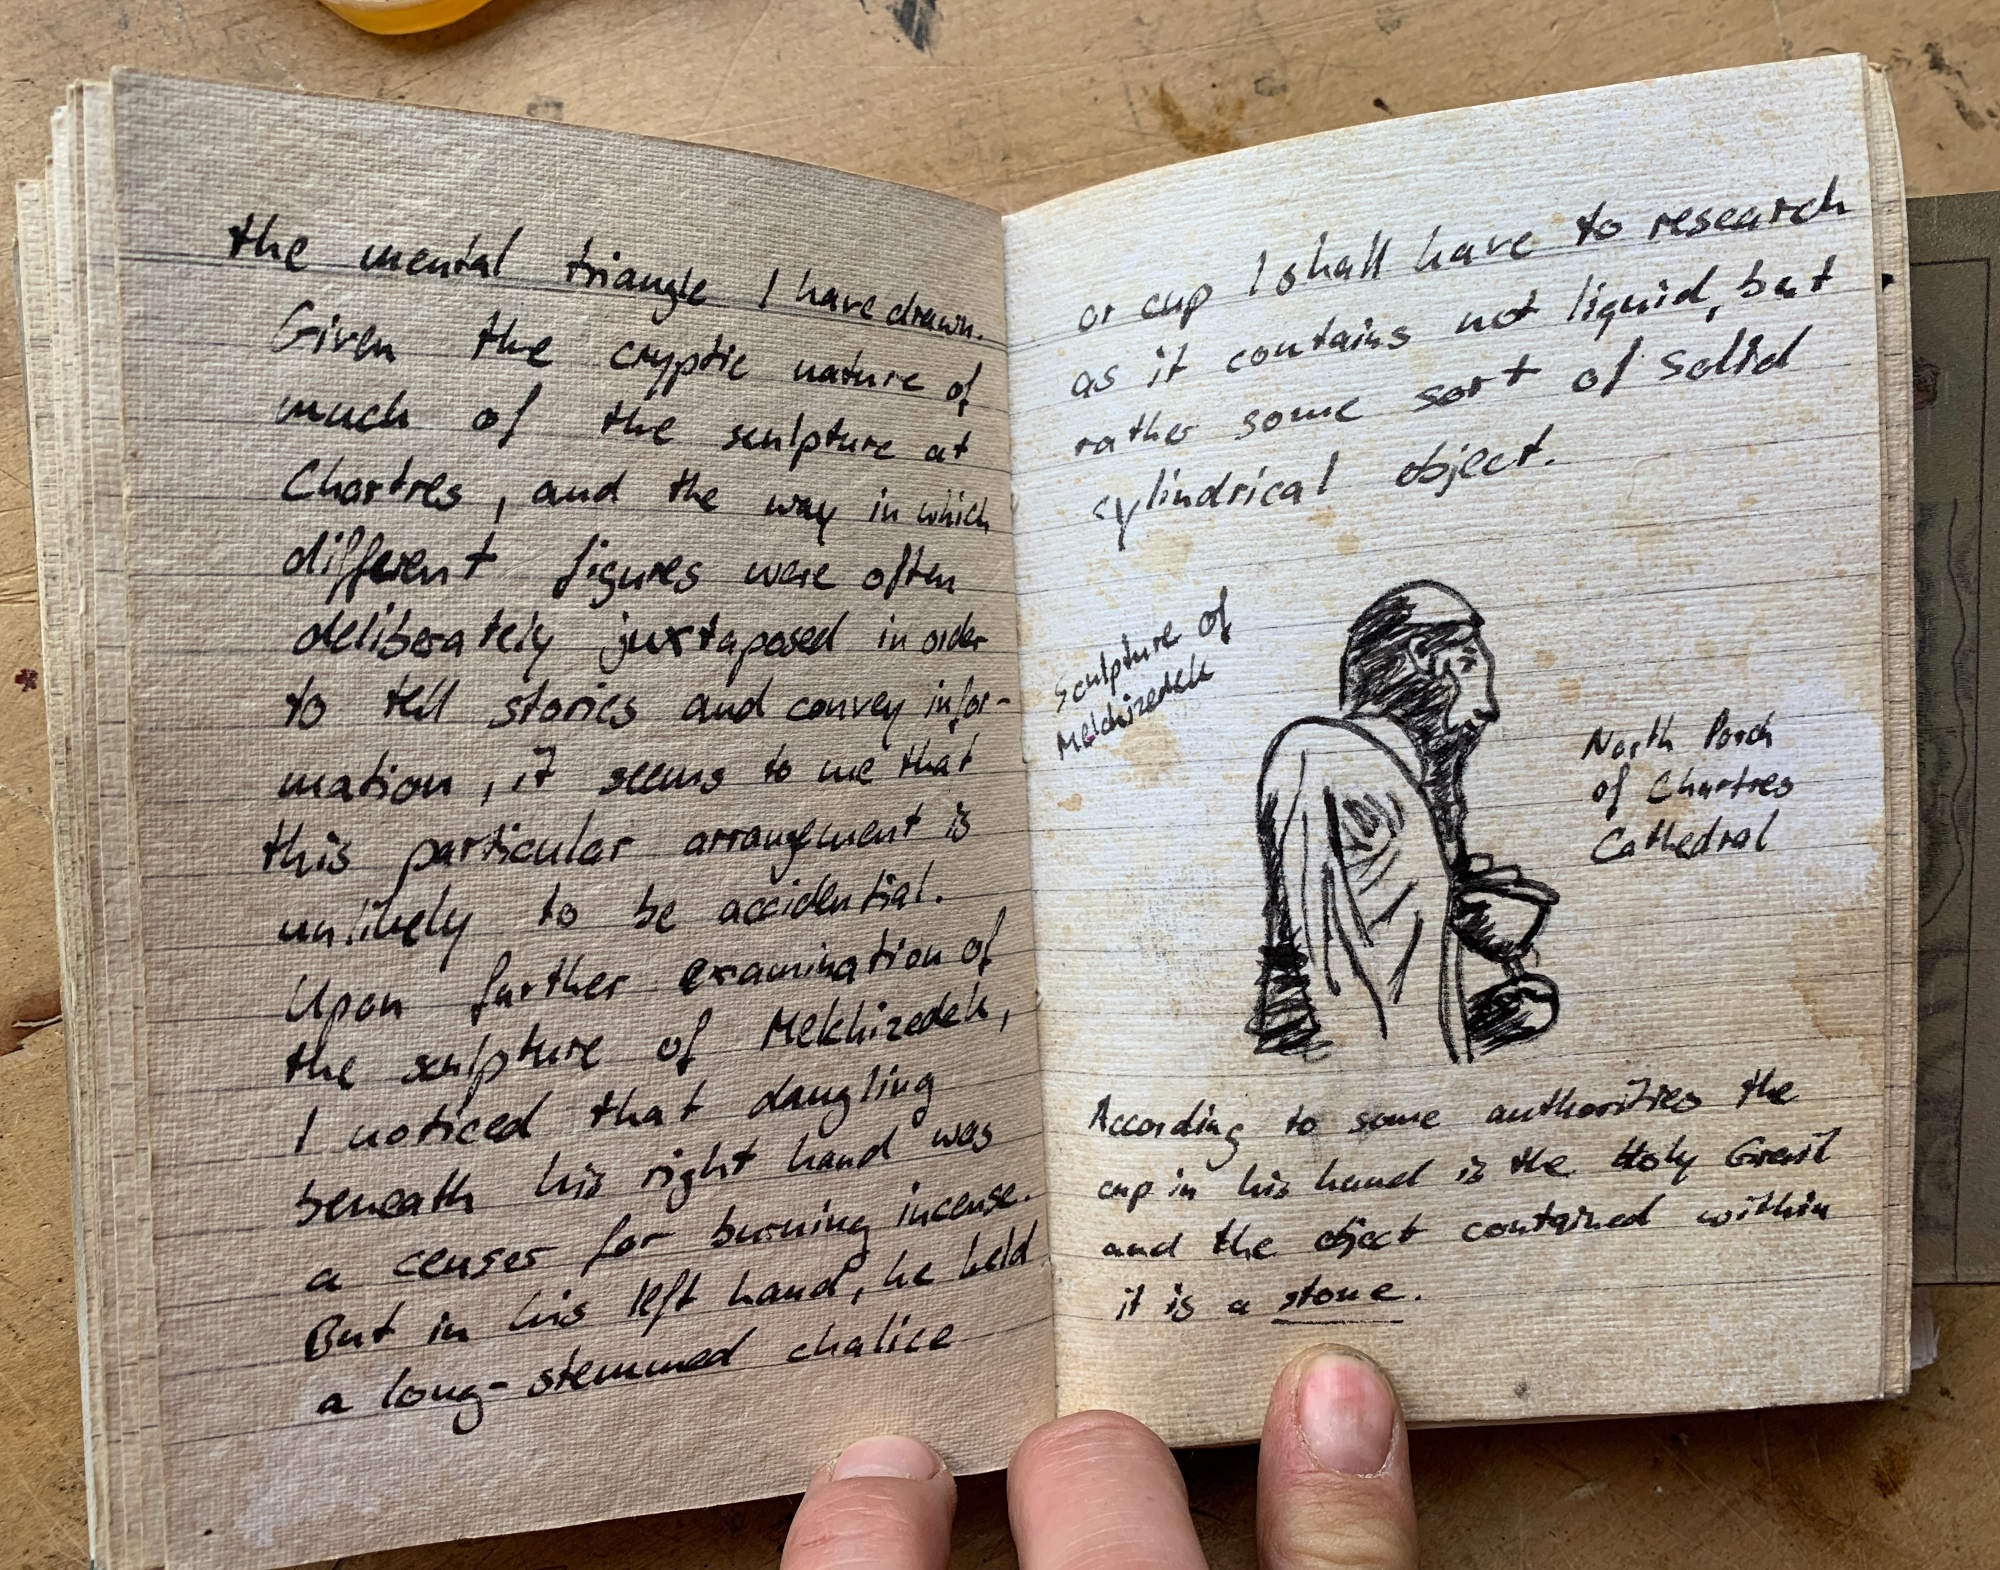 the mental triangle I have drawn.
Given the cryptic nature of
much of the sculpture at
Chartres, and the way in which
different figures were often
deliberately juxtaposed in order
to tell stories and convey infor-
mation, it seems to me that
this particular arrangement is
unlikely to be accidential.
Upon further examination of
the sculpture of Melchizedek,
I noticed that dangling
beneath his right hand was
a censer for burning incense.
But in his left hand, he held
a long-stemmed chalice
or cup I shall have to research
as it contains not liquid, but
rather some sort of solid
cylindrical object.
Sculpture of
Melchizedek
North Porch
of Chartres
Cathedral
According to some authorities the
cup in his hand is the Holy Grail
and the object contained within
it is a stone.